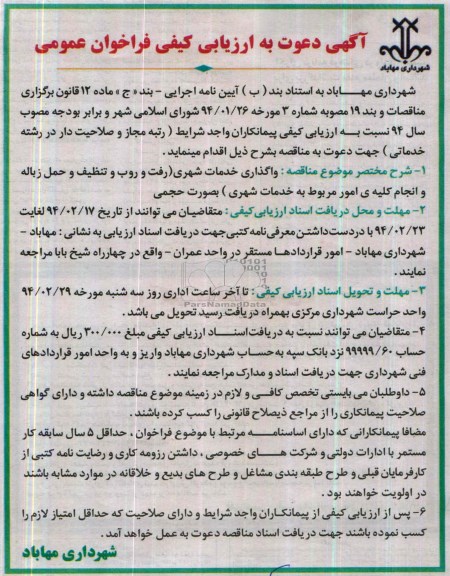 آگهی دعوت به ارزیابی کیفی فراخوان عمومی
شهرداری مهاباد
شهرداری مهـــاباد به استناد بند ( ب ) آیین نامه اجرایی - بند « ج » ماده ۱۲ قانون برگزاری
مناقصات و بند ۱۹ مصوبه شماره ۳ مورخه ۹۴/۰۱/۲۶ شورای اسلامی شهر و برابر بودجه مصوب
سال ۹۴ نسبت بــه ارزیابی کیفی پیمانکاران واجد شرایط ( رتبه مجاز و صلاحیت دار در رشته
خدماتی ) جهت دعوت به مناقصه بشرح ذیل اقدام مینماید.
۱- شرح مختصر موضوع مناقصه : واگذاری خدمات شهری(رفت و روب و تنظیف و حمل زباله
و انجام کلیه ی امور مربوط به خدمات شهری ) بصورت حجمی
۲- مهلت و محل دریافت اسناد ارزیابی کیفی : متقاضیان می توانند از تاریخ ۹۴/۰۲/۱۷ لغایت
۹۴/۰۲/۲۳ با دردست داشتن معرفی نامه کتبی جهت دریافت اسناد ارزیابی به نشانی : مهاباد -
شهرداری مهاباد - امور قراردادها مستقر در واحد عمران - واقع در چهارراه شیخ بابا مراجعه
نمایند .
ParsNamadData
۳- مهلت و تحویل اسناد ارزیابی کیفی : تا آخر ساعت اداری روز سه شنبه مورخه ۹۴/۰۲/۲۹
واحد حراست شهرداری مرکزی بهمراه دریافت رسید تحویل می باشد .
۴- متقاضیان می توانند نسبت به دریافت اسنـــاد ارزیابی کیفی مبلغ ۳۰۰/۰۰۰ ریال به شماره
حساب ۹۹۹۹۹/۶۰ نزد بانک سپه به حساب شهرداری مهاباد واریز و به واحد امور قراردادهای
فنی شهرداری جهت دریافت اسناد و مدارک مراجعه نمایند .
۵- داوطلبان می بایستی تخصص کافــی و لازم در زمینه موضوع مناقصه داشته و دارای گواهی
صلاحیت پیمانکاری را از مراجع ذیصلاح قانونی را کسب کرده باشند .
مضافا پیمانکارانی که دارای اساسنامــه مرتبط با موضوع فراخوان ، حداقل ۵ سال سابقه کار
مستمر با ادارات دولتی و شرکت هــای خصوصی ، داشتن رزومه کاری و رضایت نامه کتبی از
کارفرمایان قبلی و طرح طبقه بندی مشاغل و طرح های بدیع و خلاقانه در موارد مشابه باشند
در اولویت خواهند بود .
۶- پس از ارزیابی کیفی از پیمانکـاران واجد شرایط و دارای صلاحیت که حداقل امتیاز لازم را
کسب نموده باشند جهت دریافت اسناد مناقصه دعوت به عمل خواهد آمد .
شهرداری مهاباد